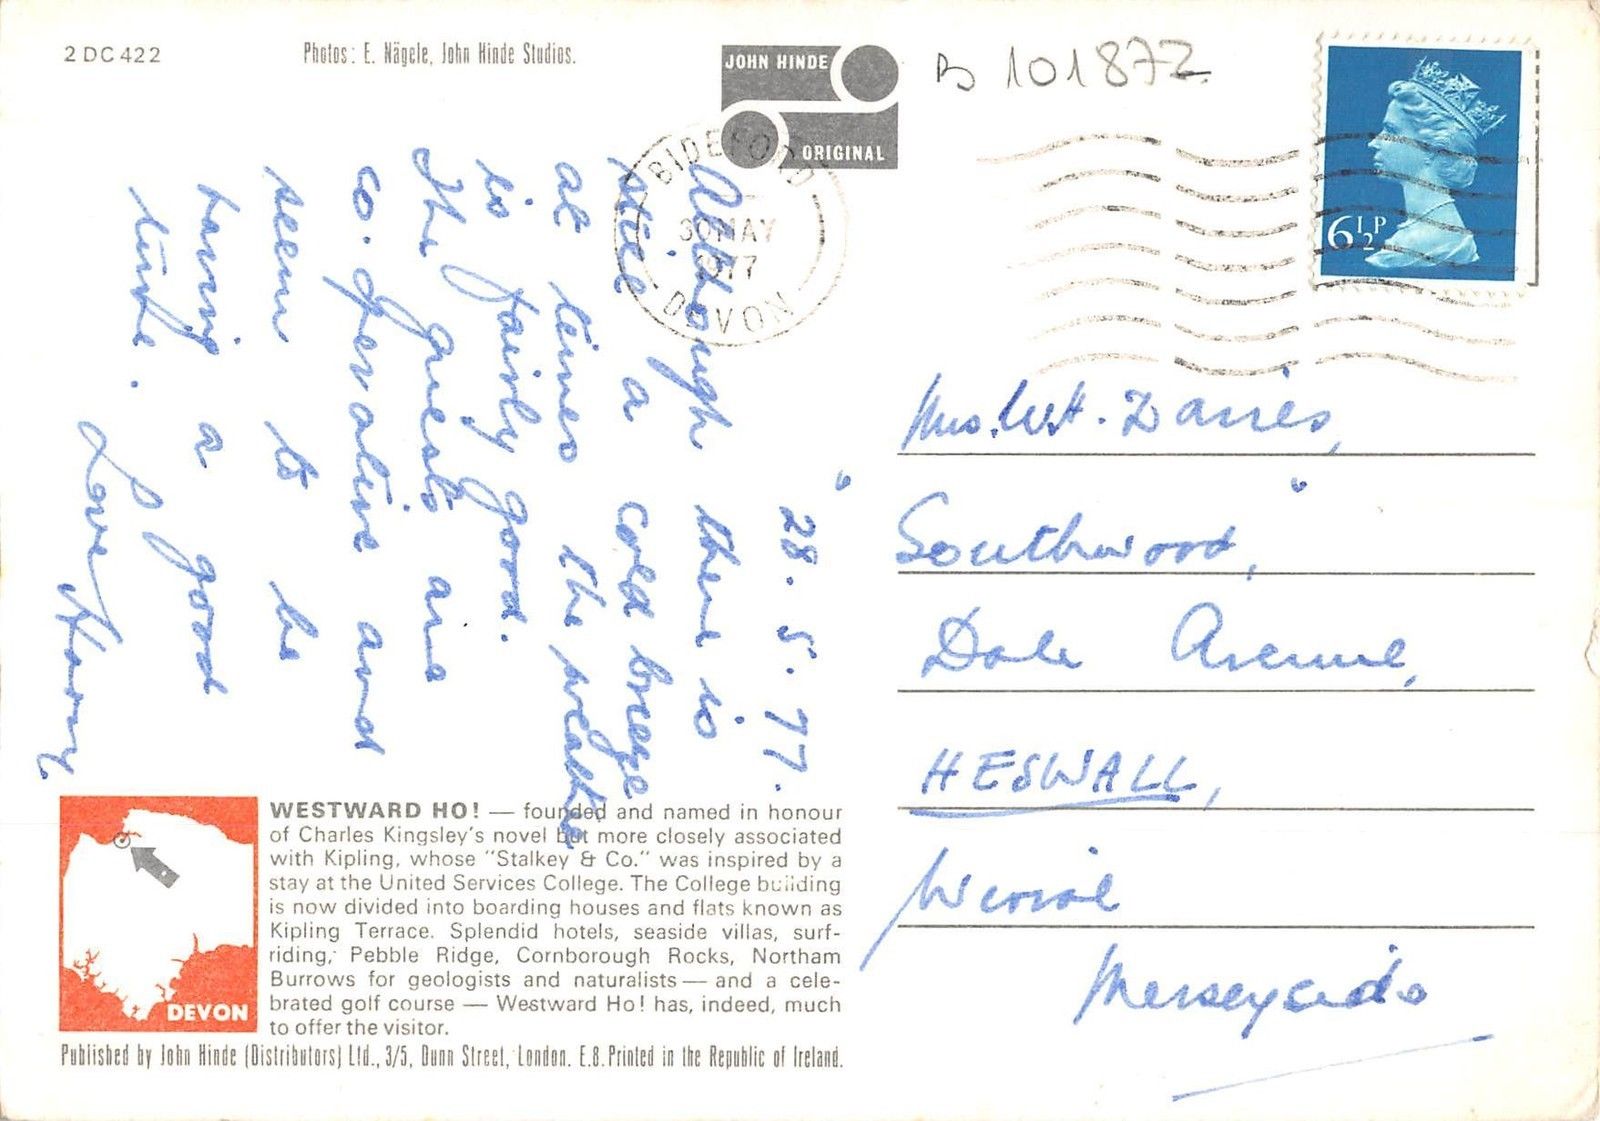 2 DC 422
Photos: E. Nägele, John Hinde Studios.
JOHN HINDE
ORIGINAL
B 101872
BIDEFORD
30 MAY
1977
DEVON
6½P
28.5.77.
Although there is
still a cold breeze
at times the weather
is fairly good.
The guests are
co-operative and
seem to be
having a good
time.
Love
Mrs. W.H. Davies,
"Southwood,"
Dale Avenue,
HESWALL,
Wirral
Merseyside
DEVON
WESTWARD HO! — founded and named in honour
of Charles Kingsley's novel but more closely associated
with Kipling, whose "Stalkey & Co." was inspired by a
stay at the United Services College. The College building
is now divided into boarding houses and flats known as
Kipling Terrace. Splendid hotels, seaside villas, surf-
riding, Pebble Ridge, Cornborough Rocks, Northam
Burrows for geologists and naturalists — and a cele-
brated golf course — Westward Ho! has, indeed, much
to offer the visitor.
Published by John Hinde (Distributors) Ltd., 3/5, Dunn Street, London. E.8. Printed in the Republic of Ireland.